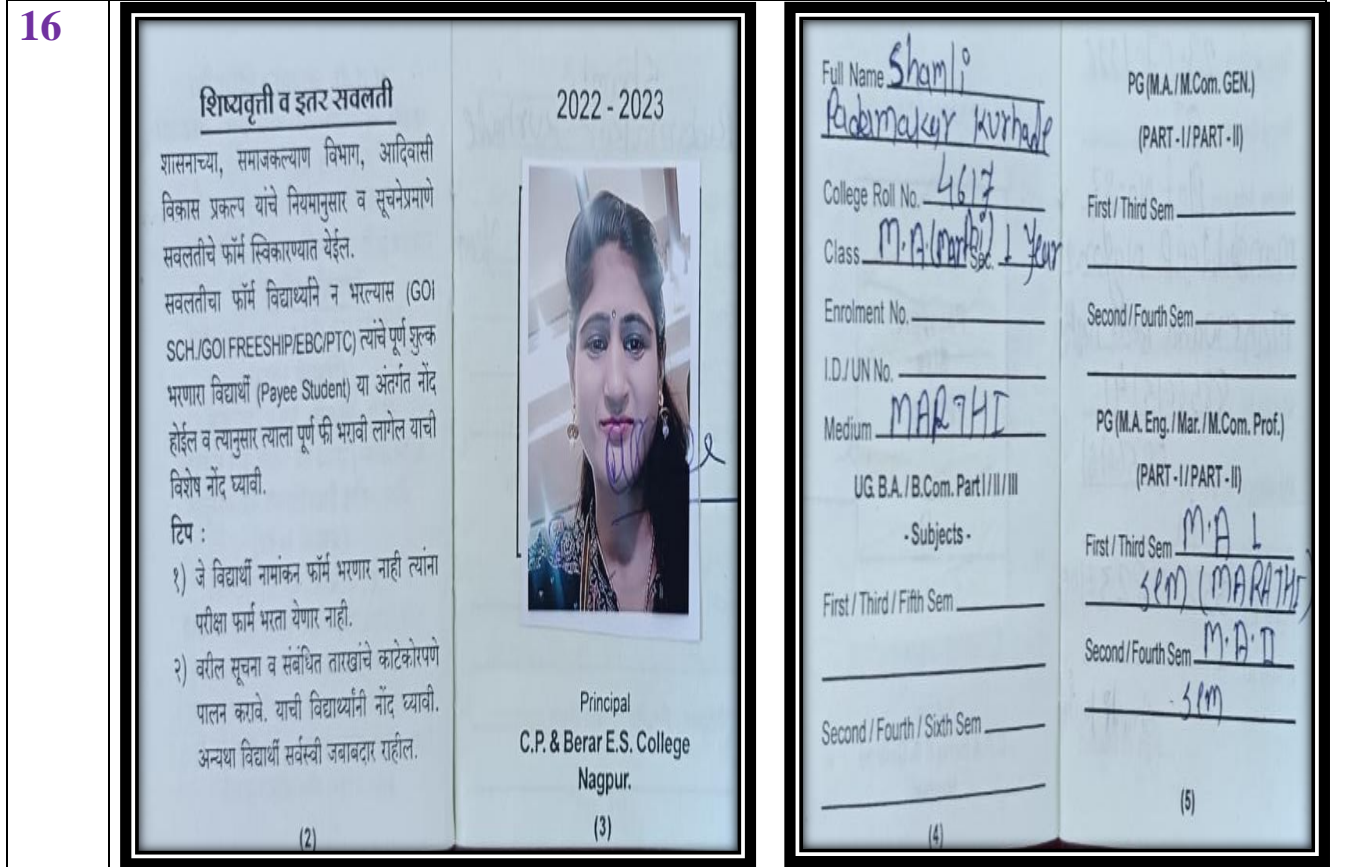 16
शिष्यवृत्ती व इतर सवलती
शासनाच्या, समाजकल्याण विभाग, आदिवासी
विकास प्रकल्प यांचे नियमानुसार व सूचनेप्रमाणे
सवलतीचे फॉर्म स्विकारण्यात येईल.
सवलतीचा फॉर्म विद्यार्थ्याने न भरल्यास (GOI
SCH./GOI FREESHIP/EBC/PTC) त्यांचे पूर्ण शुल्क
भरणारा विद्यार्थी (Payee Student) या अंतर्गत नोंद
होईल व त्यानुसार त्याला पूर्ण फी भरावी लागेल याची
विशेष नोंद घ्यावी.
टिप :
१) जे विद्यार्थी नामांकन फॉर्म भरणार नाही त्यांना
परीक्षा फार्म भरता येणार नाही.
२) वरील सूचना व संबंधित तारखांचे काटेकोरपणे
पालन करावे. याची विद्यार्थ्यांनी नोंद घ्यावी.
अन्यथा विद्यार्थी सर्वस्वी जबाबदार राहील.
(2)
2022 - 2023
Principal
C.P. & Berar E.S. College
Nagpur.
(3)
Full Name Shamli
Padamakar Kurhade
College Roll No. 4617
Class M.A. (Marthi) Sec. I Year
Enrolment No.
I.D./ UN No.
Medium MARTHI
UG. B.A. / B.Com. Part I / II / III
- Subjects -
First / Third / Fifth Sem
Second / Fourth / Sixth Sem
(4)
PG (M.A. / M.Com. GEN.)
(PART - I / PART - II)
First / Third Sem
Second / Fourth Sem
PG (M.A. Eng. / Mar. / M.Com. Prof.)
(PART - I / PART - II)
First / Third Sem M.A I
sem (MARATHI)
Second / Fourth Sem M.A.II
sem
(5)